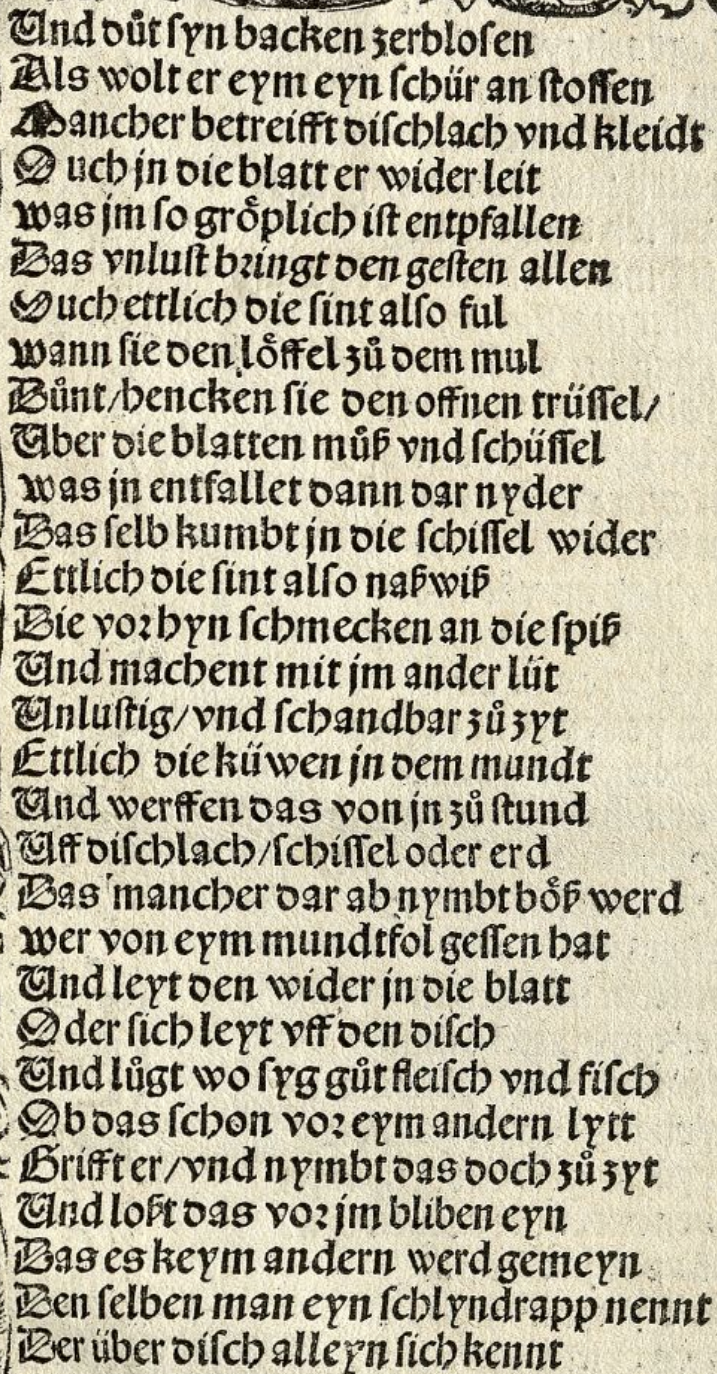 Und důt ſyn backen zerbloſen
Als wolt er eym eyn ſchür an ſtoſſen
Mancher betreifft diſchlach vnd kleidt
Ouch jn die blatt er wider leit
was jm ſo gröplich iſt entpfallen
Das vnluſt bringt den geſten allen
Ouch ettlich die ſint alſo ful
wann ſie den löffel zů dem mul
Důnt/hencken ſie den offnen trüſſel/
Uber die blatten můß vnd ſchüſſel
was jn entfallet dann dar nyder
Das ſelb kumbt jn die ſchiſſel wider
Ettlich die ſint alſo naßwiß
Die vor hyn ſchmecken an die ſpiß
Und machent mit jm ander lüt
Unluſtig/vnd ſchandbar zů zyt
Ettlich die küwen jn dem mundt
Und werffen das von jn zů ſtund
Uff diſchlach/ſchiſſel oder erd
Das mancher dar ab nymbt böß werd
wer von eym mundtfol geſſen hat
Und leyt den wider jn die blatt
Oder ſich leyt vff den diſch
Und lůgt wo ſyg gůt fleiſch vnd fiſch
Ob das ſchon vor eym andern lytt
Grifft er/vnd nymbt das doch zů zyt
Und loßt das vor jm bliben eyn
Das es keym andern werd gemeyn
Den ſelben man eyn ſchlyndrapp nennt
Der über diſch alleyn ſich kennt